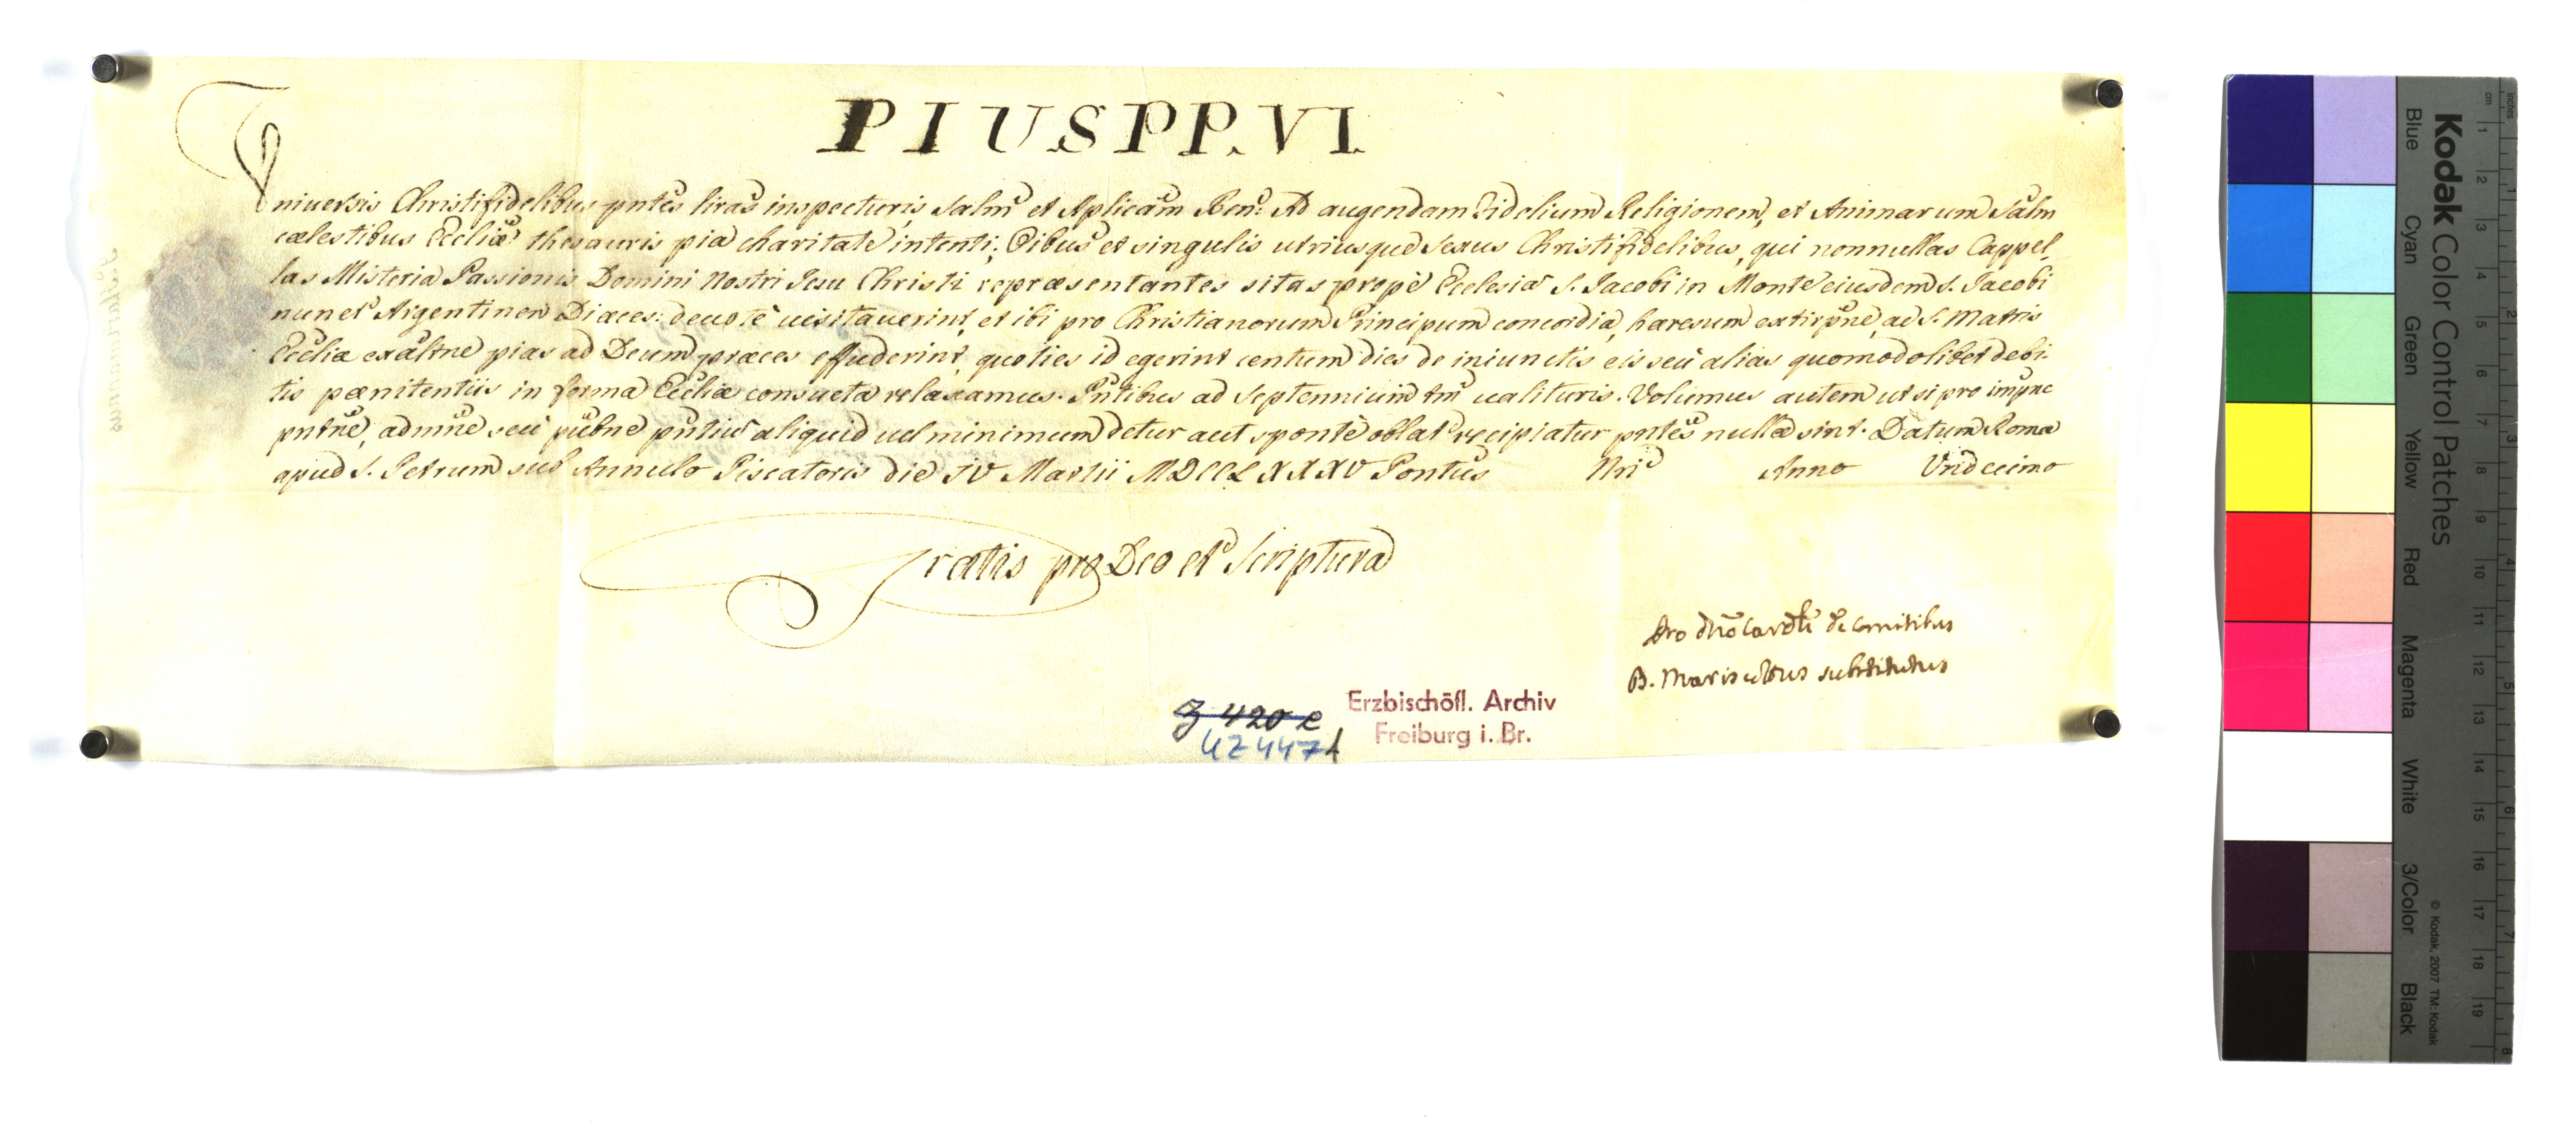 PIUS PP. VI.
Universis Christifidelibus pñtes lṙas inspecturis Salm̃ et Aplicam̃ Ben: Ad augendam Fidelium Religionem, et Animarum Salm̃
cælestibus Eccliæ thesauris pia charitate intenti; Oibus et singulis utriusque Sexus Christifidelibus, qui nonnullas Cappel,
las Misteria Passionis Domini Nostri Jesu Christi repræsentantes sitas propè Ecclesiã S. Jacobi in Monte eiusdem S. Jacobi
nun et Argentinen Diæces: deuotè uisitauerint, et ibi pro Christianorum Principum concordia, hæresum extirpñe, ac S. Matris
Eccliæ exaltñe pias ad Deum præces effuderint, quoties id egerint centum dies de iniunctis eis seù alias quomodolibet debi-
tis pænitentiis in forma Eccliæ consueta relaxamus. Pñtibus ad Septennium tm̃ ualituris. Volumus autem ut si pro impñe
pñtñe, admñe seù pubñe pñtiũ aliquid uel minimum detur aut sponte oblat recipiatur pñtes nullæ sint. Datum Romæ
apud S. Petrum sub Annulo Piscatoris die IV Martii MDCCLXXXV Pontũs Nri Anno Undecimo
Gratis pro Deo et Scriptura
Pro Dño Cardli de Comitibus
B. Mariscottus substitutus
Erzbischöfl. Archiv
Freiburg i. Br.
g 420 e
UZ 4471
Kodak Color Control Patches
Blue Cyan Green Yellow Red Magenta White 3/Color Black
© Kodak, 2007 TM: Kodak
cm 1 2 3 4 5 6 7 8 9 10 11 12 13 14 15 16 17 18 19
inches 1 2 3 4 5 6 7 8